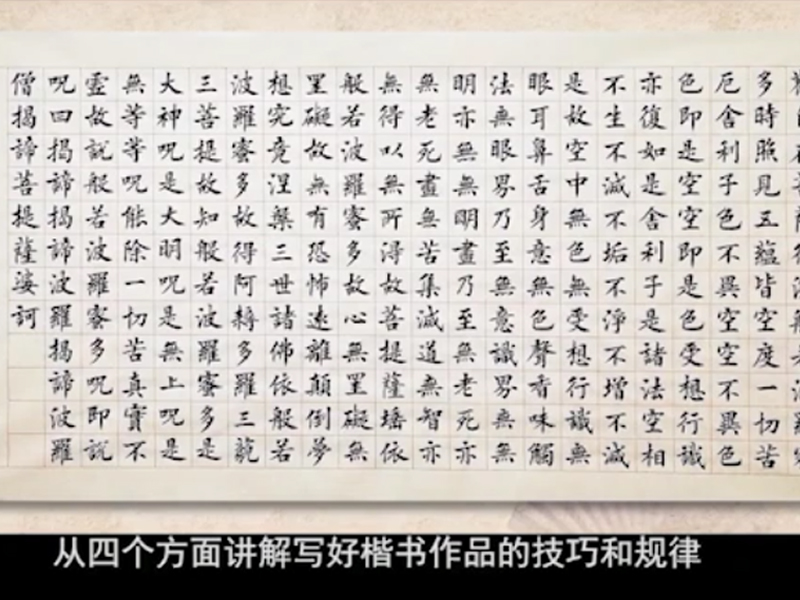 多時照見五蘊皆空度一切苦
厄舍利子色不異空空不異色
色即是空空即是色受想行識
亦復如是舍利子是諸法空相
不生不滅不垢不淨不增不減
是故空中無色無受想行識無
眼耳鼻舌身意無色聲香味觸
法無眼界乃至無意識界無無
明亦無無明盡乃至無老死亦
無老死盡無苦集滅道無智亦
無得以無所得故菩提薩埵依
般若波羅蜜多故心無罣礙無
罣礙故無有恐怖遠離顛倒夢
想究竟涅槃三世諸佛依般若
波羅蜜多故得阿耨多羅三藐
三菩提故知般若波羅蜜多是
大神咒是大明咒是無上咒是
無等等咒能除一切苦真實不
虛故說般若波羅蜜多咒即說
咒曰揭諦揭諦波羅揭諦波羅
僧揭諦菩提薩婆訶
从四个方面讲解写好楷书作品的技巧和规律